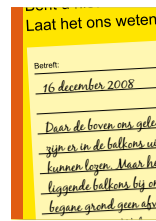 Laat het ons weten
Betreft:
16 december 2008
Daar de boven ons gele
zijn er in de balkons
kunnen lozen. Maar
liggende balkons bij
begane grond geen